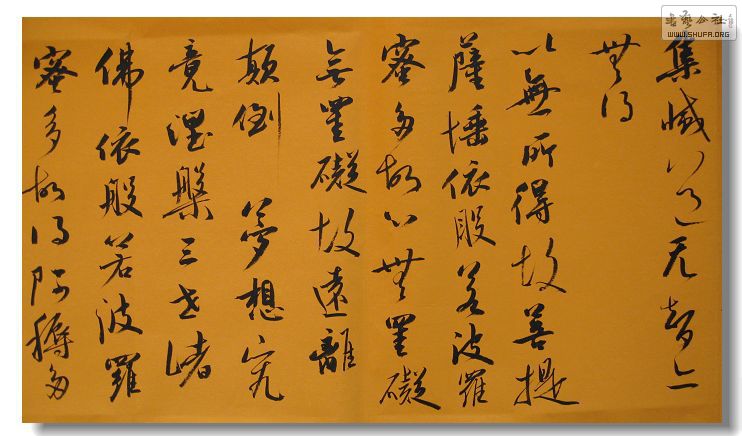 集滅道无智亦
無得
以無所得故菩提
薩埵依般若波羅
蜜多故心無罣礙
無罣礙故遠離
顛倒夢想究
竟涅槃三世諸
佛依般若波羅
蜜多故得阿耨多
书艺公社
WWW.SHUFA.ORG